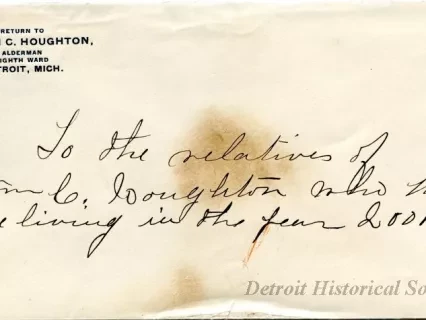 RETURN TO
C. HOUGHTON,
ALDERMAN
IGHTH WARD
TROIT, MICH.
To the relatives of
m C. Houghton who
living in the year 2001
Detroit Historical So